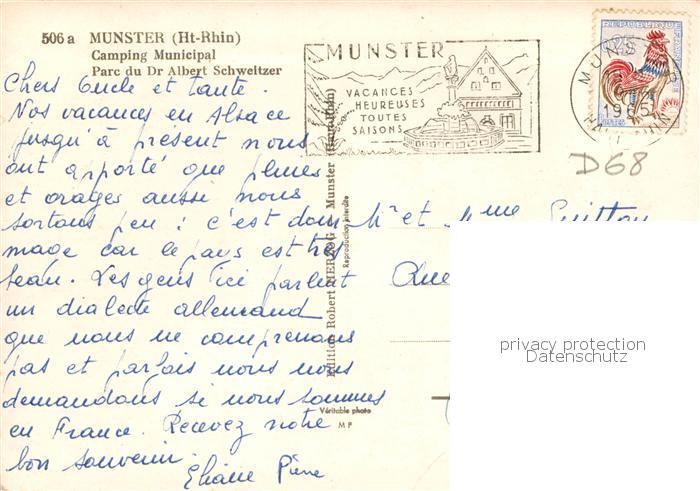 506 a MUNSTER (Ht-Rhin)
Camping Municipal
Parc du Dr Albert Schweitzer
MUNSTER
VACANCES
HEUREUSES
TOUTES
SAISONS
MUNSTER
1965
D68
Chers Oncle et tante.
Nos vacances en Alsace
jusqu'à présent nous
ont apporté que pluies
et orages aussi nous
sortons peu : c'est dom
mage car le pays est très
beau. Les gens ici parlent
un dialecte allemand
que nous ne comprenons
pas et parfois nous nous
demandons si nous sommes
en France. Recevez notre
bon souvenir.
Eliane Pierre
Edition Robert HERZOG - Munster (Haut-Rhin)
Reproduction interdite
Véritable photo
M P
Mr et Mme Guitton
privacy protection
Datenschutz